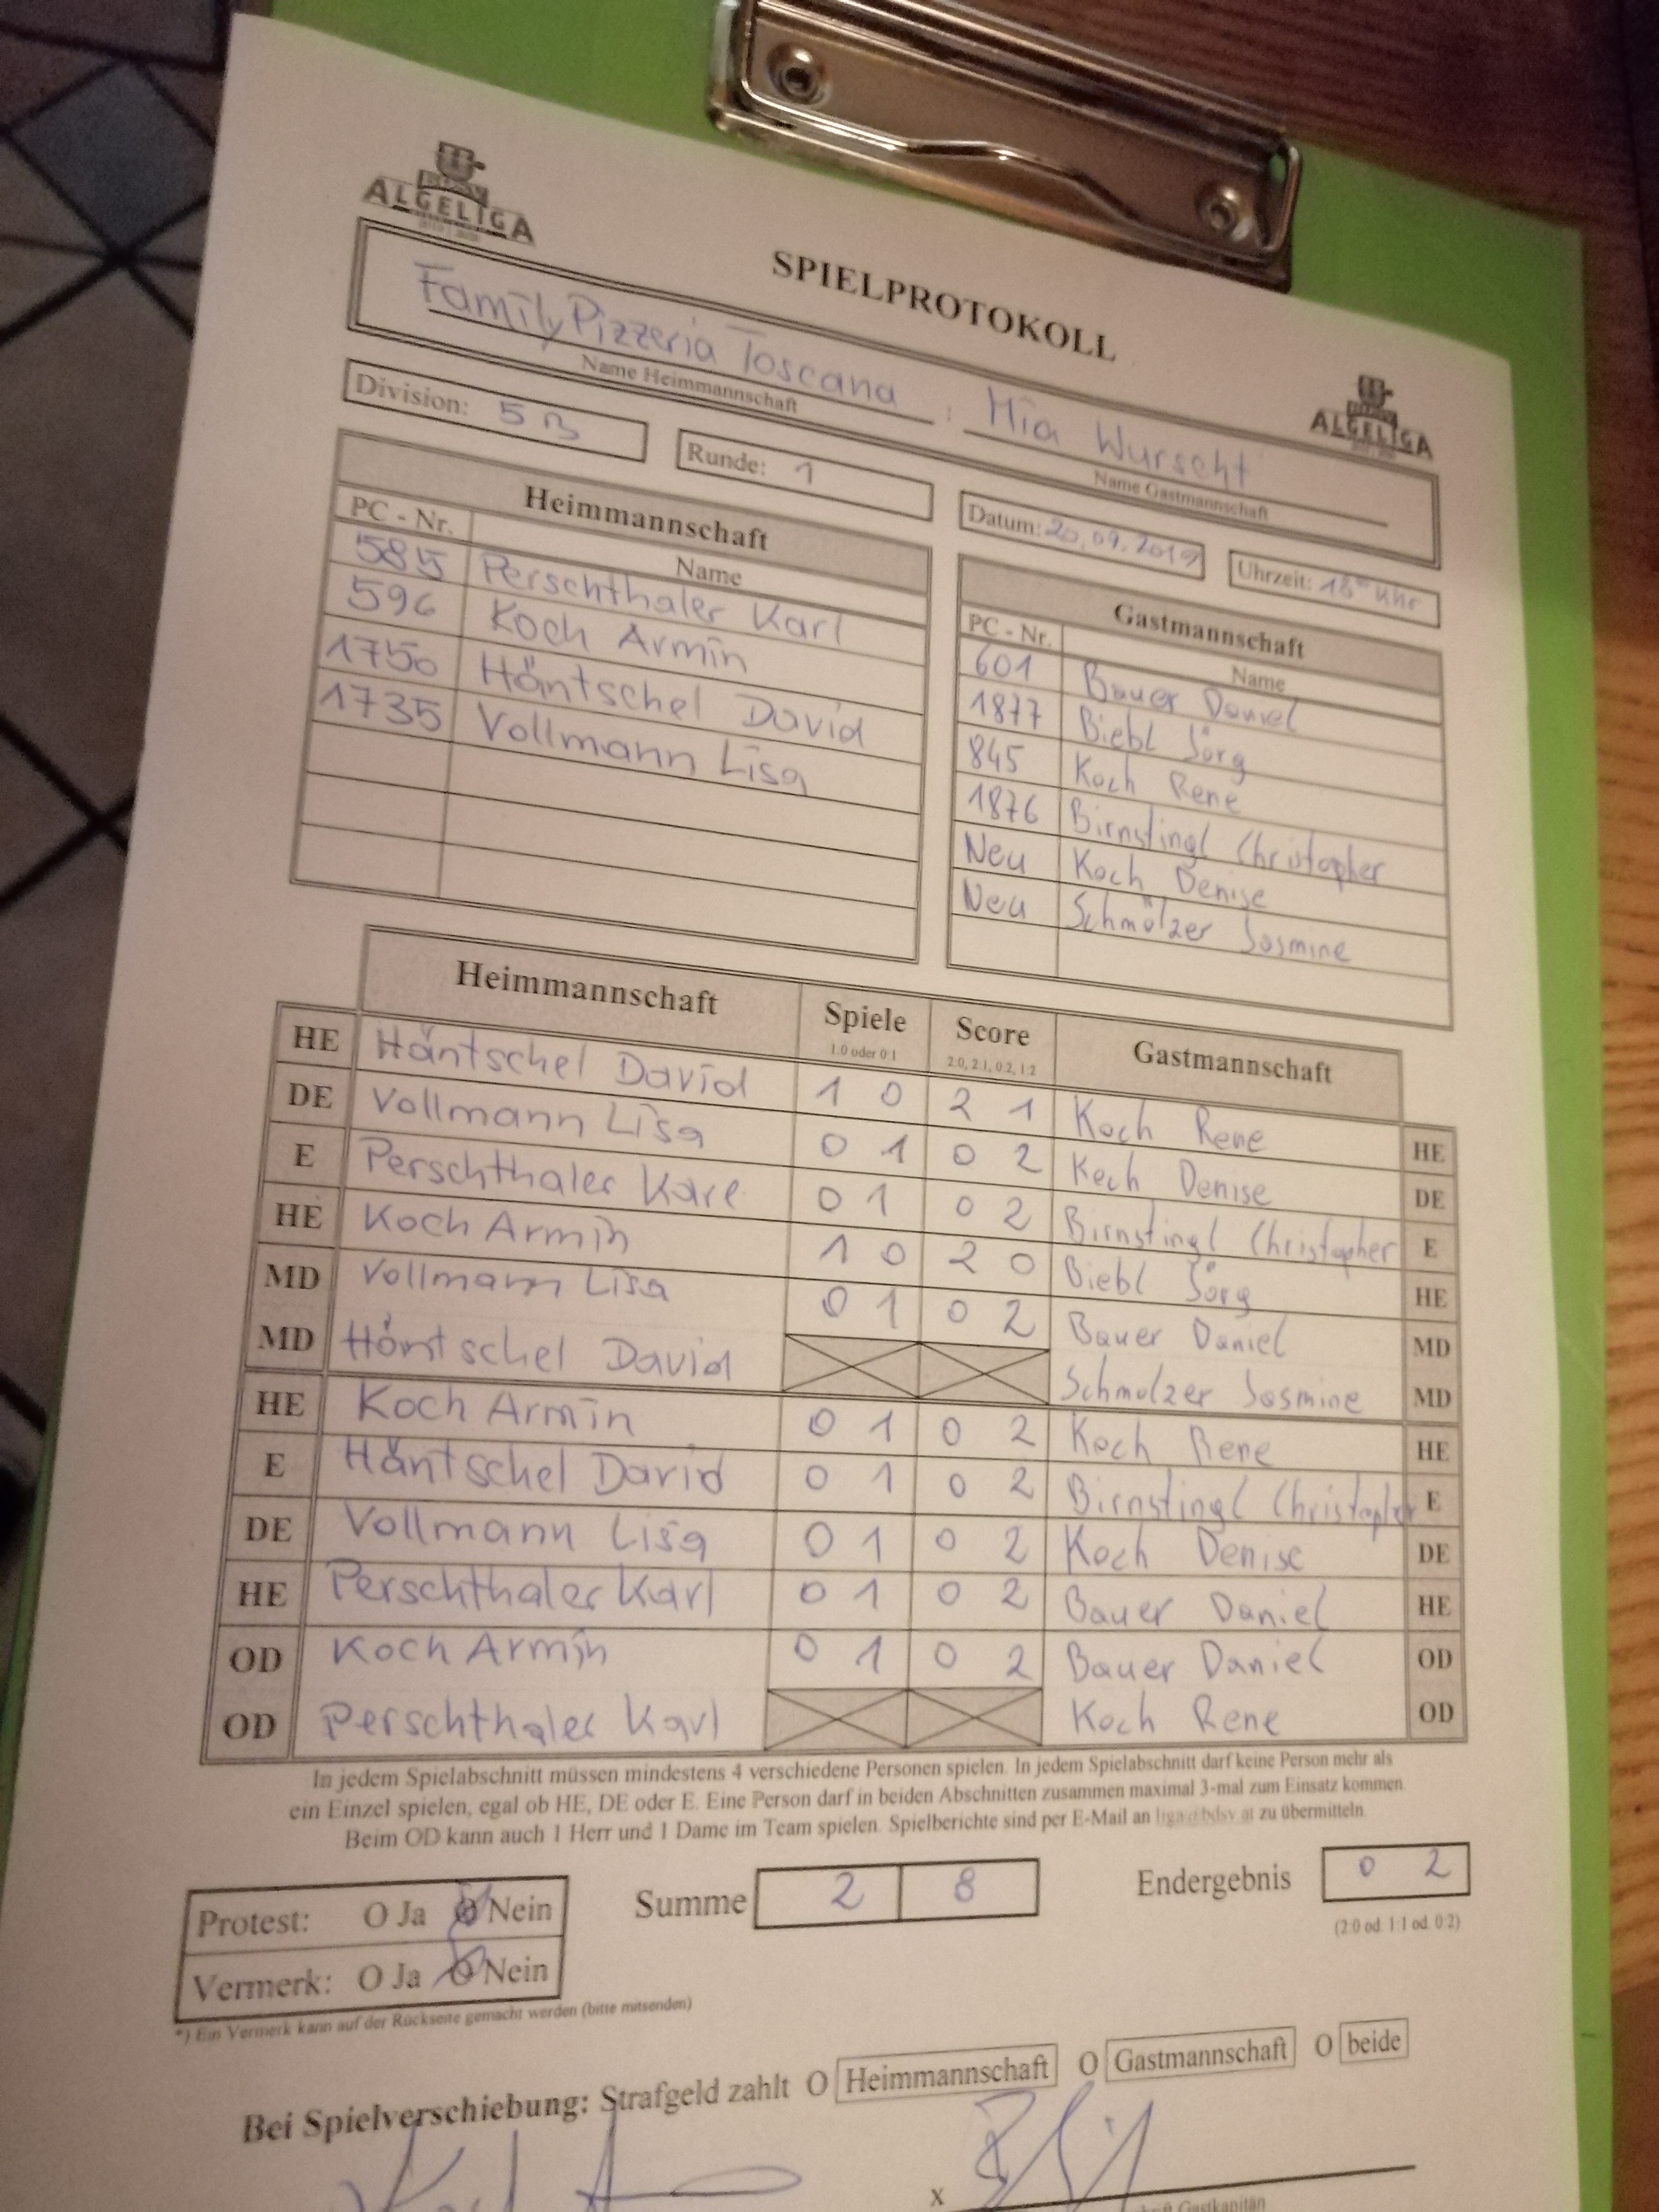 ALGELIGA
SPIELPROTOKOLL
ALGELIGA
Family Pizzeria Toscana : Mia Wurscht
Name Heimmannschaft Name Gastmannschaft
Division: 5 B Runde: 1 Datum: 20.09.2019 Uhrzeit: 18⁰⁰ Uhr
Heimmannschaft
PC - Nr. Name
585 Perschthaler Karl
596 Koch Armin
1750 Häntschel David
1735 Vollmann Lisa
Gastmannschaft
PC - Nr. Name
601 Bauer Daniel
1877 Biebl Jörg
845 Koch Rene
1876 Birnstingl Christopher
Neu Koch Denise
Neu Schmölzer Jasmine
Heimmannschaft Spiele Score Gastmannschaft
1:0 oder 0:1 2:0, 2:1, 0:2, 1:2
HE Häntschel David 1 0 2 1 Koch Rene HE
DE Vollmann Lisa 0 1 0 2 Koch Denise DE
E Perschthaler Karl 0 1 0 2 Birnstingl Christopher E
HE Koch Armin 1 0 2 0 Biebl Jörg HE
MD Vollmann Lisa 0 1 0 2 Bauer Daniel MD
MD Häntschel David Schmölzer Jasmine MD
HE Koch Armin 0 1 0 2 Koch Rene HE
E Häntschel David 0 1 0 2 Birnstingl Christopher E
DE Vollmann Lisa 0 1 0 2 Koch Denise DE
HE Perschthaler Karl 0 1 0 2 Bauer Daniel HE
OD Koch Armin 0 1 0 2 Bauer Daniel OD
OD Perschthaler Karl Koch Rene OD
In jedem Spielabschnitt müssen mindestens 4 verschiedene Personen spielen. In jedem Spielabschnitt darf keine Person mehr als
ein Einzel spielen, egal ob HE, DE oder E. Eine Person darf in beiden Abschnitten zusammen maximal 3-mal zum Einsatz kommen.
Beim OD kann auch 1 Herr und 1 Dame im Team spielen. Spielberichte sind per E-Mail an liga@bdsv.at zu übermitteln.
Protest: O Ja O Nein Summe 2 8 Endergebnis 0 2
(2:0 od. 1:1 od. 0:2)
Vermerk: O Ja O Nein
*) Ein Vermerk kann auf der Rückseite gemacht werden (bitte mitsenden)
Bei Spielverschiebung: Strafgeld zahlt O Heimmannschaft O Gastmannschaft O beide
x
Gastkapitän